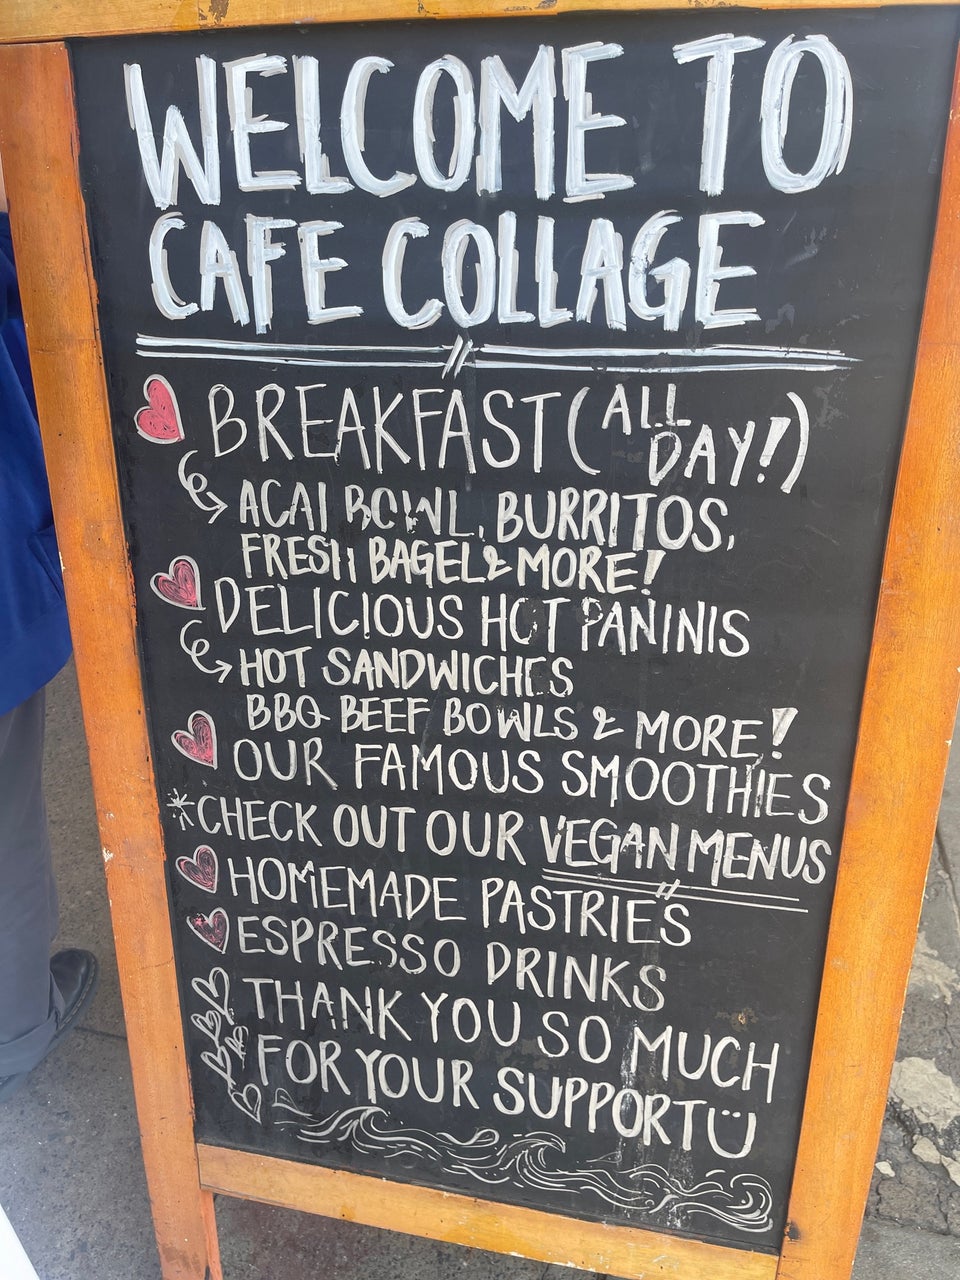 WELCOME TO
CAFE COLLAGE
BREAKFAST (ALL DAY!)
ACAI BOWL, BURRITOS,
FRESH BAGEL & MORE!
DELICIOUS HOT PANINIS
HOT SANDWICHES
BBQ BEEF BOWLS & MORE!
OUR FAMOUS SMOOTHIES
*CHECK OUT OUR VEGAN MENUS
HOMEMADE PASTRIES
ESPRESSO DRINKS
THANK YOU SO MUCH
FOR YOUR SUPPORT Ü